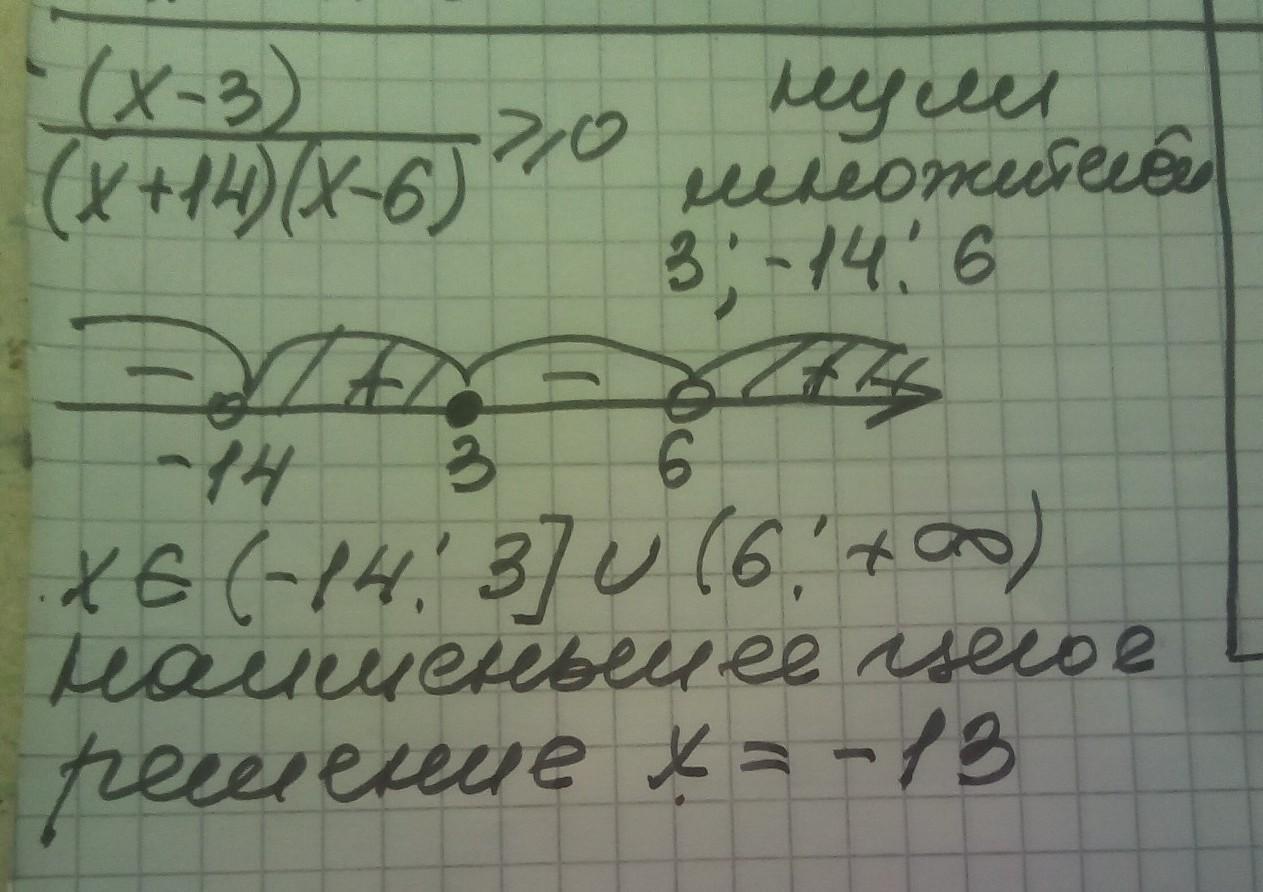 (x-3)
(x+14)(x-6)
≥0
нули
множителей
3; -14; 6
- + - +
-14 3 6
x ∈ (-14; 3] ∪ (6; +∞)
наименьшее целое
решение x = -13